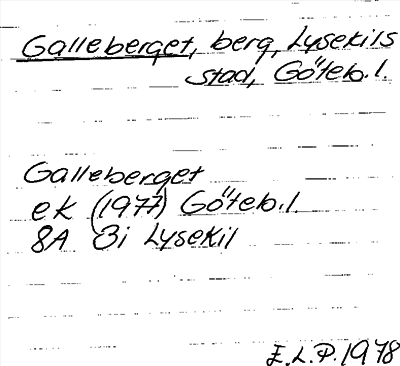 Galleberget, berg, Lysekils
stad, Göteb.l.
Galleberget
ek (1977) Göteb.l.
8A 3i Lysekil
E.L.P. 1978